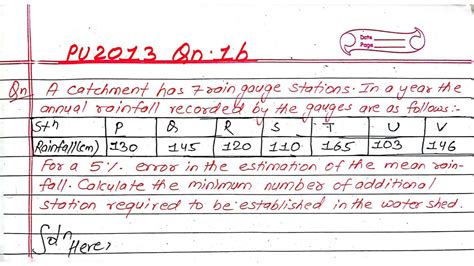 PU2013 Qn.1b
Date
Page
Qn A catchment has 7 rain gauge stations. In a year the
annual rainfall recorded by the gauges are as follows:-
Stn P Q R S T U V
Rainfall(cm) 130 145 120 110 165 103 146
For a 5% error in the estimation of the mean rain-
fall. Calculate the minimum number of additional
station required to be established in the water shed.
Soln
Here,